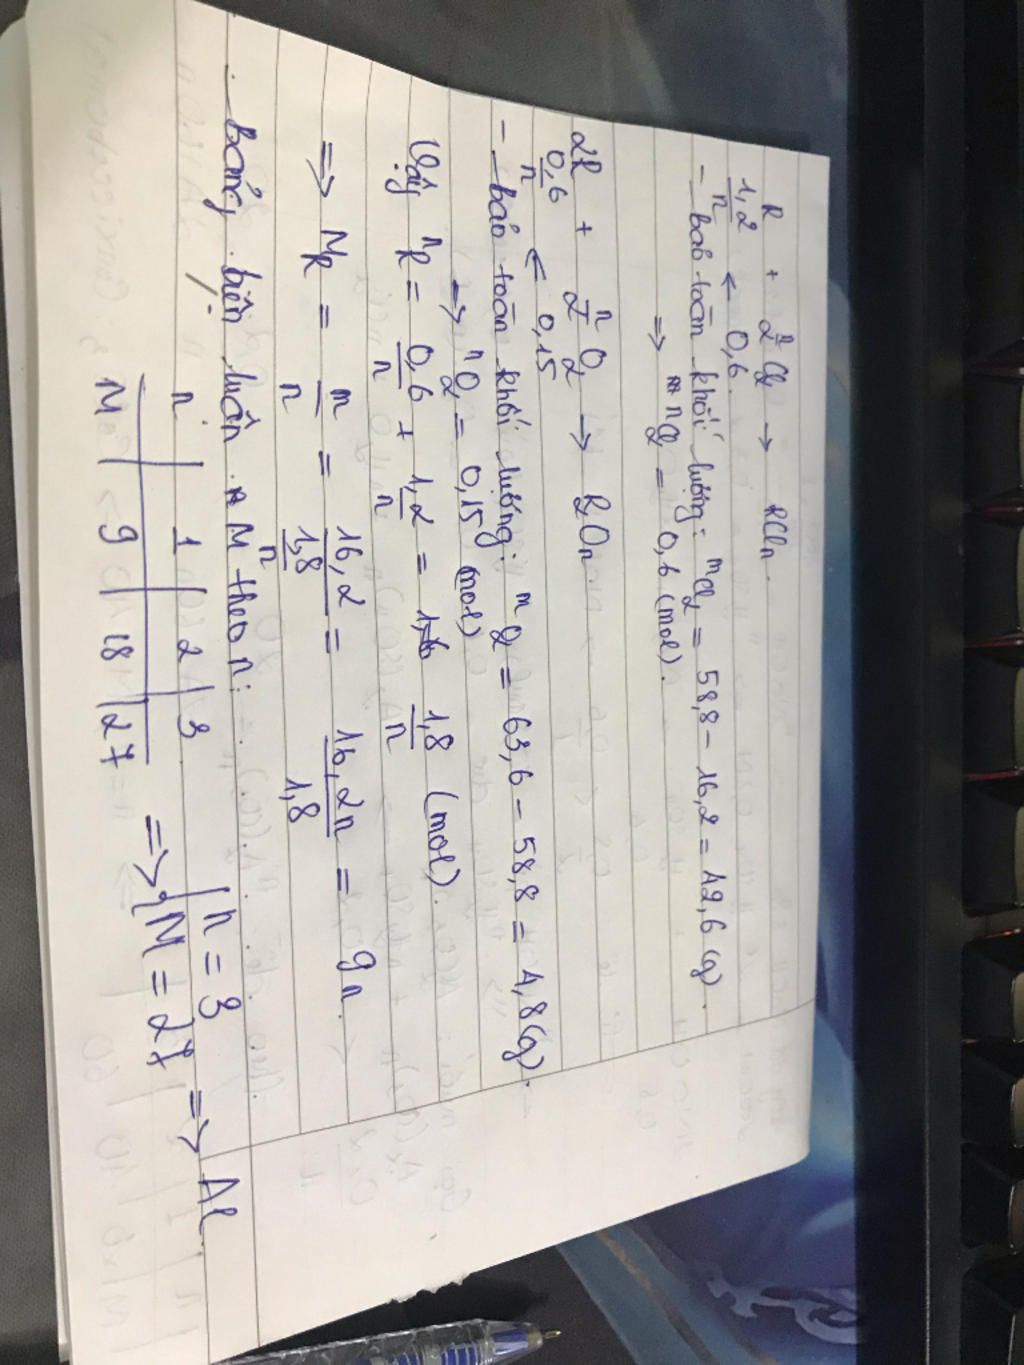 R + n/2 Cl2 → RCln.
1,2/n ← 0,6
- bảo toàn khối lượng: mCl2 = 58,8 - 16,2 = 42,6 (g).
⇒ nCl2 = 0,6 (mol).
2R + n/2 O2 → R2On
0,6/n ← 0,15
- bảo toàn khối lượng: mO2 = 63,6 - 58,8 = 4,8 (g).
⇒ nO2 = 0,15 (mol)
Vậy nR = 0,6/n + 1,2/n = 1,8/n (mol).
⇒ MR = m/n = 16,2/(1,8/n) = 16,2n/1,8 = 9n.
Bảng biện luận M theo n:
n | 1 | 2 | 3
M | 9 | 18 | 27
⇒ { n = 3
M = 27 ⇒ Al